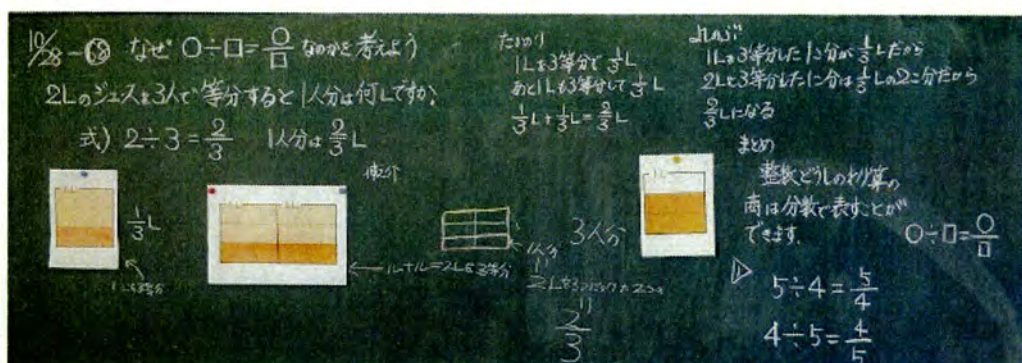 10/28-68 なぜ ○÷□=○/□ なのかを考えよう
2Lのジュースを3人で等分すると1人分は何Lですか。
式) 2÷3=2/3 1人分は2/3L
1/3L
1Lを3等分
1L+1L=2Lを3等分
1人分
3人分
2/3
1Lを3等分で1/3L
あと1Lも3等分して1/3L
1/3L+1/3L=2/3L
1Lを3等分した1こ分が1/3Lだから
2Lを3等分した1こ分は1/3Lの2こ分だから
2/3Lになる
まとめ
整数どうしのわり算の
商は分数で表すことが
できます。
○÷□=○/□
① 5÷4=5/4
4÷5=4/5